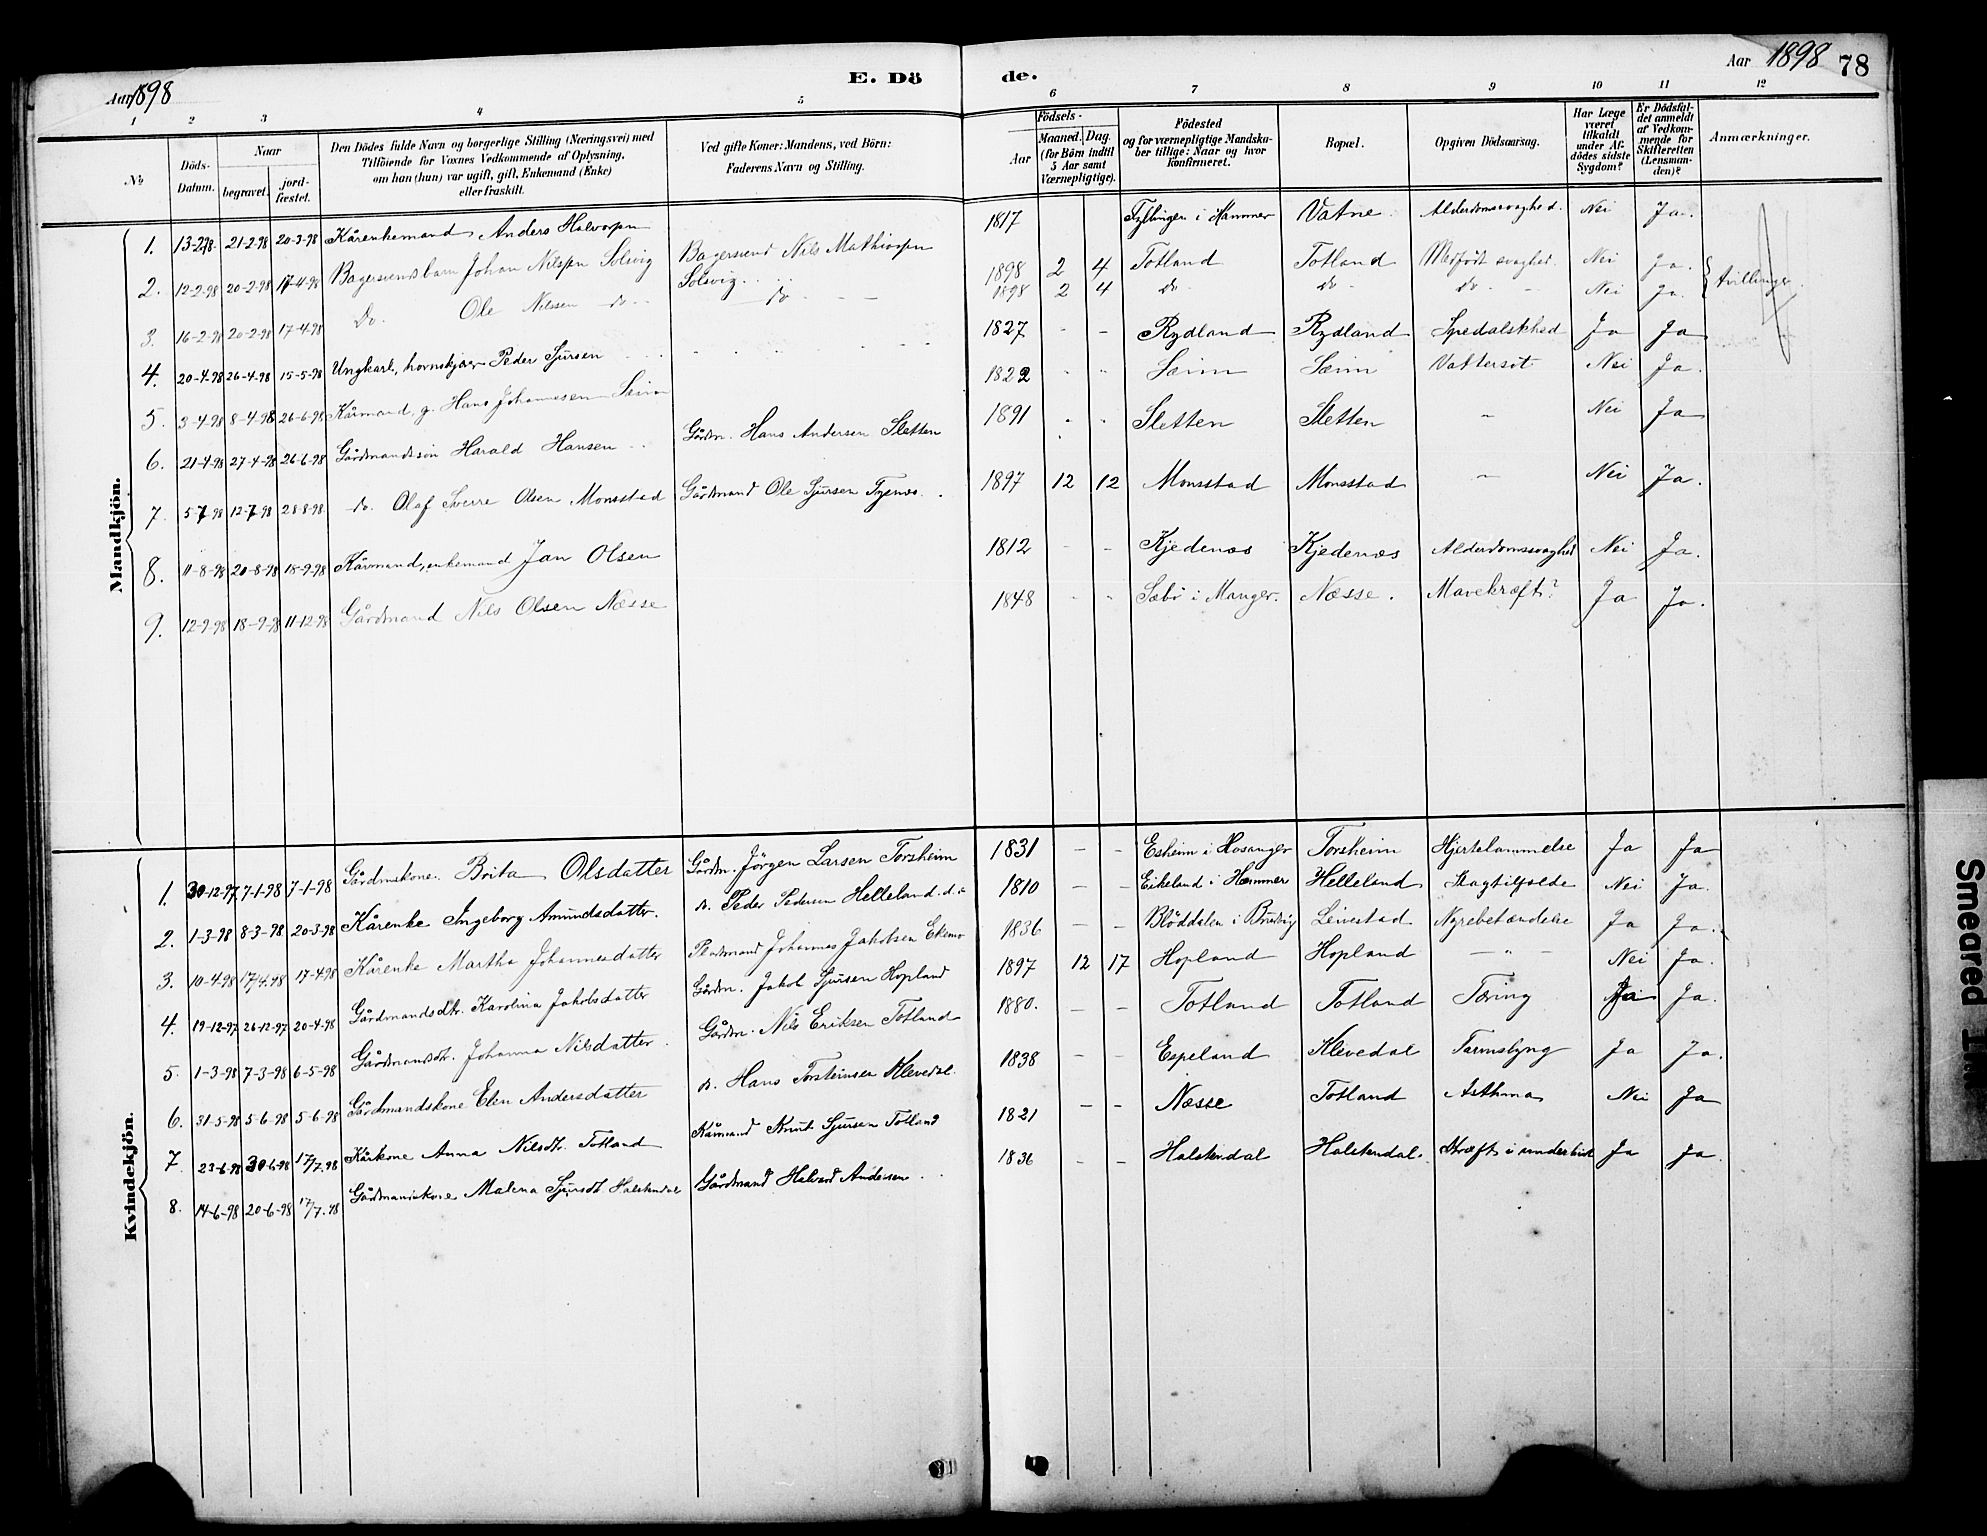 Aar 1898 E. Dö de. Aar 1898 78
1 2 3 4 5 6 7 8 9 10 11 12
№ Döds-Datum. Naar begravet. jord-fæstet. Den Dödes fulde Navn og borgerlige Stilling (Næringsvei) med Tilföiende for Voxnes Vedkommende af Oplysning, om han (hun) var ugift, gift, Enkemand (Enke) eller fraskilt. Ved gifte Koner: Mandens, ved Börn: Faderens Navn og Stilling. Födsels- Aar Maaned. Dag. (for Börn indtil 5 Aar samt Værnepligtige). Födested og for værnepligtige Mandskaber tillige: Naar og hvor konfirmeret. Bopæl. Opgiven Dödsaarsag. Har Læge været tilkaldt under Afdödes sidste Sygdom? Er Dödsfaldet anmeldt af Vedkommende for Skifteretten (Lensmanden)? Anmærkninger.
Mandkjön.
1. 13-2-98 21-2-98 20-3-98 Kårenkemand Anders Halvorsen 1817 i Hammer Vatne Alderdomssvaghed. Nei Ja.
2. 12-2-98 20-2-98 17-4-98 Bagersvendsbarn Johan Nilsen Solvig Bagersvend Nils Mathiassen Solsvig 1898 2 4 Totland Totland Medfødt svaghed. Nei Ja.
3. 16-2-98 20-2-98 17-4-98 Do. Ole Nilssen do do 1898 2 4 do do do Nei Ja. Tvillinger.
4. 20-4-98 26-4-98 15-5-98 Ungkarl, Peder Sjursen 1827 - - Rydland Rydland Spedalskhed Ja Ja
5. 3-4-98 8-4-98 26-6-98 Kårmand, g. Hans Johannesen Seim 1822 " " Seim Seim Vattersot Nei Ja.
6. 21-4-98 27-4-98 26-6-98 Gårdmandssøn Harald Hansen Gårdm. Hans Andersen Sletten 1891 Sletten Sletten - Nei Ja
7. 5-7-98 12-7-98 28-8-98 do. Olaf Sverre Olsen Monsstad Gårdmand Ole Sjursen 1897 12 12 Monsstad Monsstad - Nei Ja.
8. 11-8-98 20-8-98 18-9-98 Kårmand, enkemand Jan Olsen 1812 - - Kjedenæs Kjedenæs Alderdomssvaghed Nei Ja.
9. 12-9-98 18-9-98 11-12-98 Gårdmand Nils Olsen Næsse 1848 " " Sæbø i Manger. Næsse. Mavekræft? Ja Ja.
Kvindekjön.
1. 30-12-97 7-1-98 7-1-98 Gårdmskone. Brita Olsdatter Gårdm. Jörgen Larsen Torsheim 1831 - - Esheim i Hosanger Torsheim Hjertelammelse Ja Ja
2. 1-3-98 8-3-98 20-3-98 Kårenke Ingeborg Amundsdatter. do. Peder Pedersen Helleland 1810 - - Eikeland i Hammer Helleland Slagtilfælde Nei Ja.
3. 10-4-98 17/4.98 17-4-98 Kårenke Martha Johannesdatter Johannes Jakobsen 1836 - - Blöddalen i Leivestad Nyrebetændelse Ja Ja.
4. 19-12-97 26-12-97 20-4-98 Gårdmandsdtr. Karolina Jakobsdatter Gårdm. Jakob Sjursen Hopland 1897 12 17 Hopland Hopland - " - Nei Ja.
5. 1-3-98 7-3-98 6-5-98 Gårdmandsdt. Johanna Nilsdatter. Gårdm. Nils Eriksen Totland 1880. - - Totland Totland Tæring Ja Ja.
6. 31-5-98 5-6-98 5-6-98 Gårdmandskone Elen Andersdatter do. Hans Torsteinsen Klevedal. 1838 - - Espeland Klevedal Tarmslyng Ja Ja.
7. 23-6-98 30-6-98 17/7.98 Kårkone Anna Nilsdt. Totland Kårmand Knut Sjursen Totland 1821 - - Næsse Totland Asthma Nei Ja
8. 14-6-98 20-6-98 17/7.98 Gårdmandskone Malena Sjursdt. Halstendal Gårdmand Halvard Andersen 1836 - - Halstendal Halstendal. Kræft i underlivet Ja Ja.
Smeared